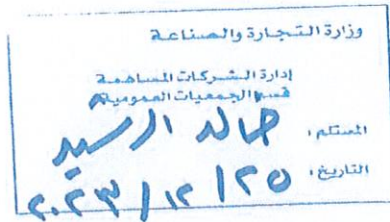 وزارة التجارة والصناعة
إدارة الشركات المساهمة
قسم الجمعيات العمومية
المستلم : خالد الرسيد
التاريخ : ٢٠٢٣/١٢/٢٥